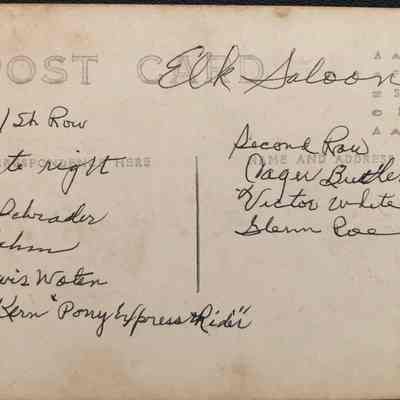 POST CARD
Elk Saloon
1st Row
CORRESPONDENCE HERE
to right
Schrader
ewis Woten
Kern "Pony Express Rider"
NAME AND ADDRESS
Second Row
Butler
Victor White
Glenn Poe